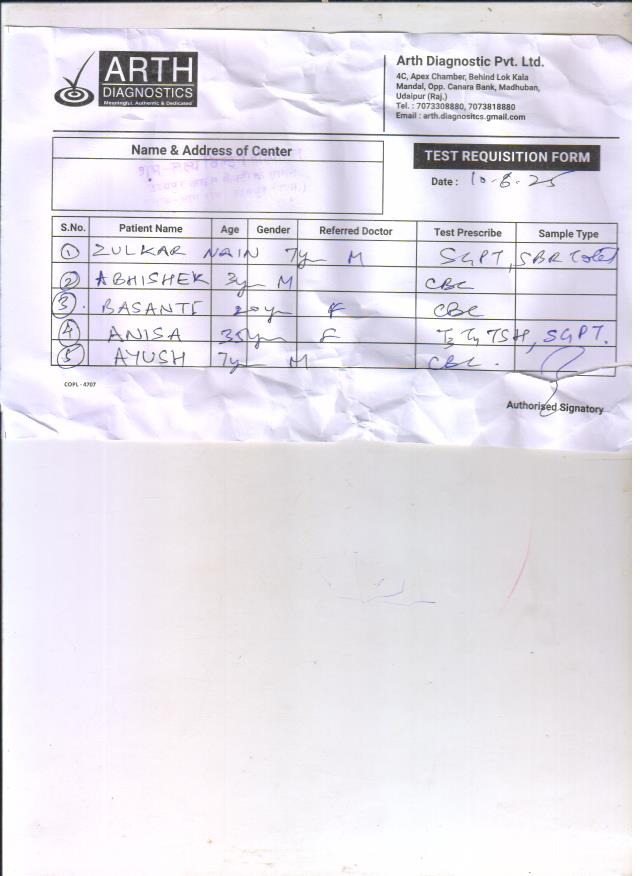 ARTH
DIAGNOSTICS
Meaningful, Authentic & Dedicated
Arth Diagnostic Pvt. Ltd.
4C, Apex Chamber, Behind Lok Kala
Mandal, Opp. Canara Bank, Madhuban,
Udaipur (Raj.)
Tel. : 7073308880, 7073818880
Email : arth.diagnositcs.gmail.com
Name & Address of Center
TEST REQUISITION FORM
Date : 10-6-25
S.No. Patient Name Age Gender Referred Doctor Test Prescribe Sample Type
1 ZULKAR NAIN 7yr M SGPT, SBR Total
2 ABHISHEK 3yr M CBC
3. BASANTI 20yr F CBC
4 ANISA 35yr F T3 T4 TSH, SGPT.
5 AYUSH 7yr M CBC.
COPL - 4707
Authorised Signatory